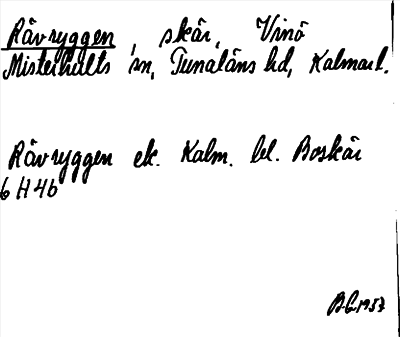 Rävryggen, skär, Vinö
Misterhults sn, Tunaläns hd, Kalmar l.
Rävryggen ek. Kalm. bl. Boskär
6 H 4b
B.G. 1957